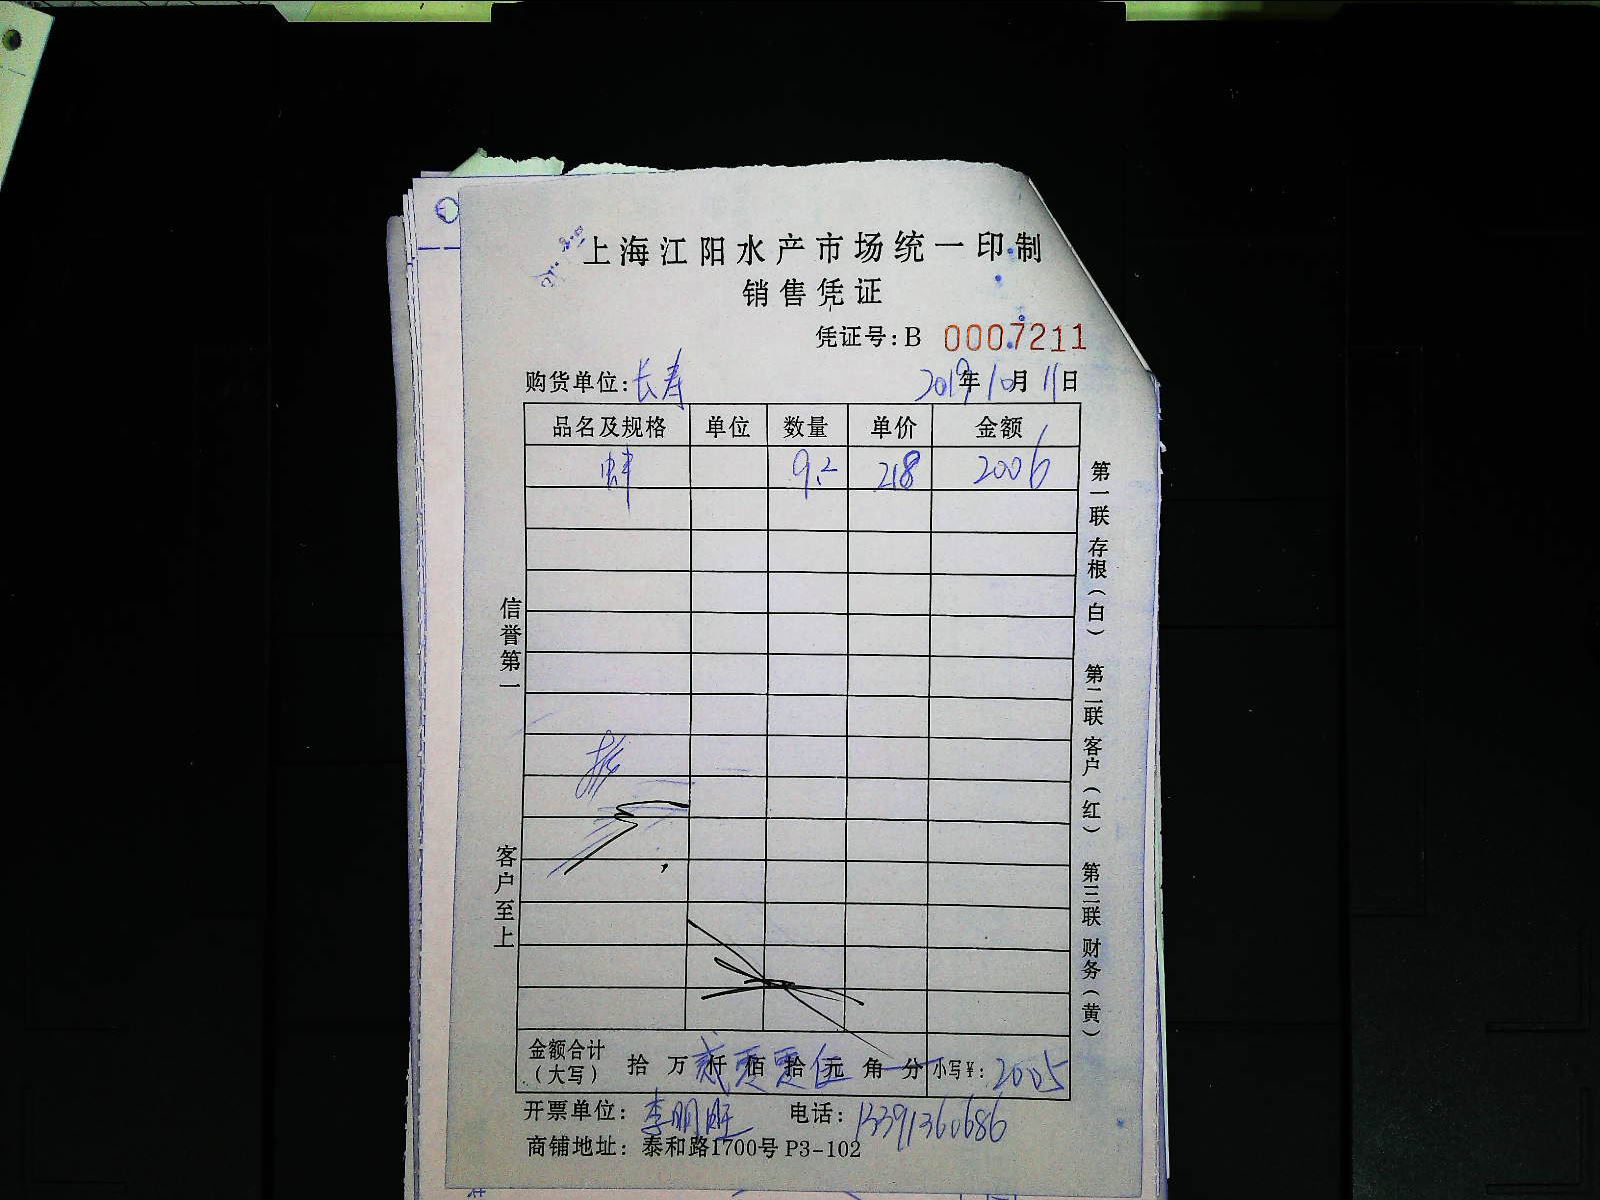 上海江阳水产市场统一印制
销售凭证
凭证号:B 0007211
购货单位:长寿 2019年10月11日
品名及规格 单位 数量 单价 金额
蚌 9.2 218 2006
信誉第一
客户至上
第一联 存根(白) 第二联 客户(红) 第三联 财务(黄)
金额合计(大写) 拾 万贰仟零佰零拾伍元 角 分 小写¥:2005
开票单位:李明旺 电话:13391360686
商铺地址:泰和路1700号 P3-102